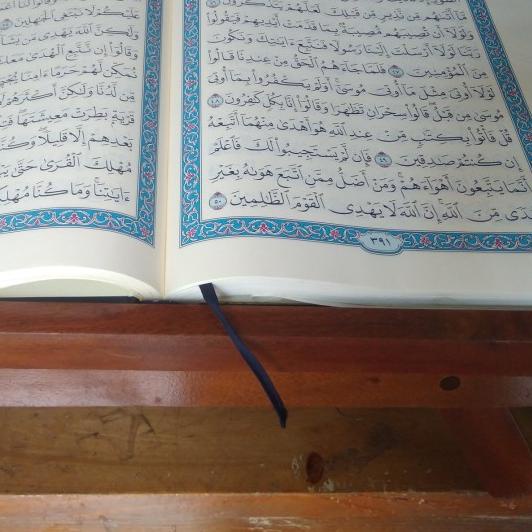 مَّآ أَتَىٰهُم مِّن نَّذِيرٍ مِّن قَبْلِكَ لَعَلَّهُمْ يَتَذَكَّرُونَ
وَلَوْلَآ أَن تُصِيبَهُم مُّصِيبَةٌۢ بِمَا قَدَّمَتْ أَيْدِيهِمْ فَيَقُولُوا۟
رَبَّنَا لَوْلَآ أَرْسَلْتَ إِلَيْنَا رَسُولًا فَنَتَّبِعَ ءَايَٰتِكَ وَنَكُونَ
مِنَ ٱلْمُؤْمِنِينَ ٤٧ فَلَمَّا جَآءَهُمُ ٱلْحَقُّ مِنْ عِندِنَا قَالُوا۟
لَوْلَآ أُوتِىَ مِثْلَ مَآ أُوتِىَ مُوسَىٰٓ أَوَلَمْ يَكْفُرُوا۟ بِمَآ أُوتِىَ
مُوسَىٰ مِن قَبْلُ قَالُوا۟ سِحْرَانِ تَظَٰهَرَا وَقَالُوٓا۟ إِنَّا بِكُلٍّ كَٰفِرُونَ ٤٨
قُلْ فَأْتُوا۟ بِكِتَٰبٍ مِّنْ عِندِ ٱللَّهِ هُوَ أَهْدَىٰ مِنْهُمَآ أَتَّبِعْهُ
إِن كُنتُمْ صَٰدِقِينَ ٤٩ فَإِن لَّمْ يَسْتَجِيبُوا۟ لَكَ فَٱعْلَمْ
أَنَّمَا يَتَّبِعُونَ أَهْوَآءَهُمْ وَمَنْ أَضَلُّ مِمَّنِ ٱتَّبَعَ هَوَىٰهُ بِغَيْرِ
هُدًى مِّنَ ٱللَّهِ إِنَّ ٱللَّهَ لَا يَهْدِى ٱلْقَوْمَ ٱلظَّٰلِمِينَ ٥٠
٣٩١
عَلَيْكُمْ لَا نَبْتَغِى ٱلْجَٰهِلِينَ
وَلَٰكِنَّ ٱللَّهَ يَهْدِى مَن يَشَآ
وَقَالُوٓا۟ إِن نَّتَّبِعِ ٱلْهُدَىٰ مَعَكَ
نُمَكِّن لَّهُمْ حَرَمًا ءَامِنًا يُجْبَىٰ
مِّن لَّدُنَّا وَلَٰكِنَّ أَكْثَرَهُمْ لَا
قَرْيَةٍۭ بَطِرَتْ مَعِيشَتَهَا
بَعْدِهِمْ إِلَّا قَلِيلًا وَكُنَّا
مُهْلِكَ ٱلْقُرَىٰ حَتَّىٰ
ءَايَٰتِنَا وَمَا كُنَّا